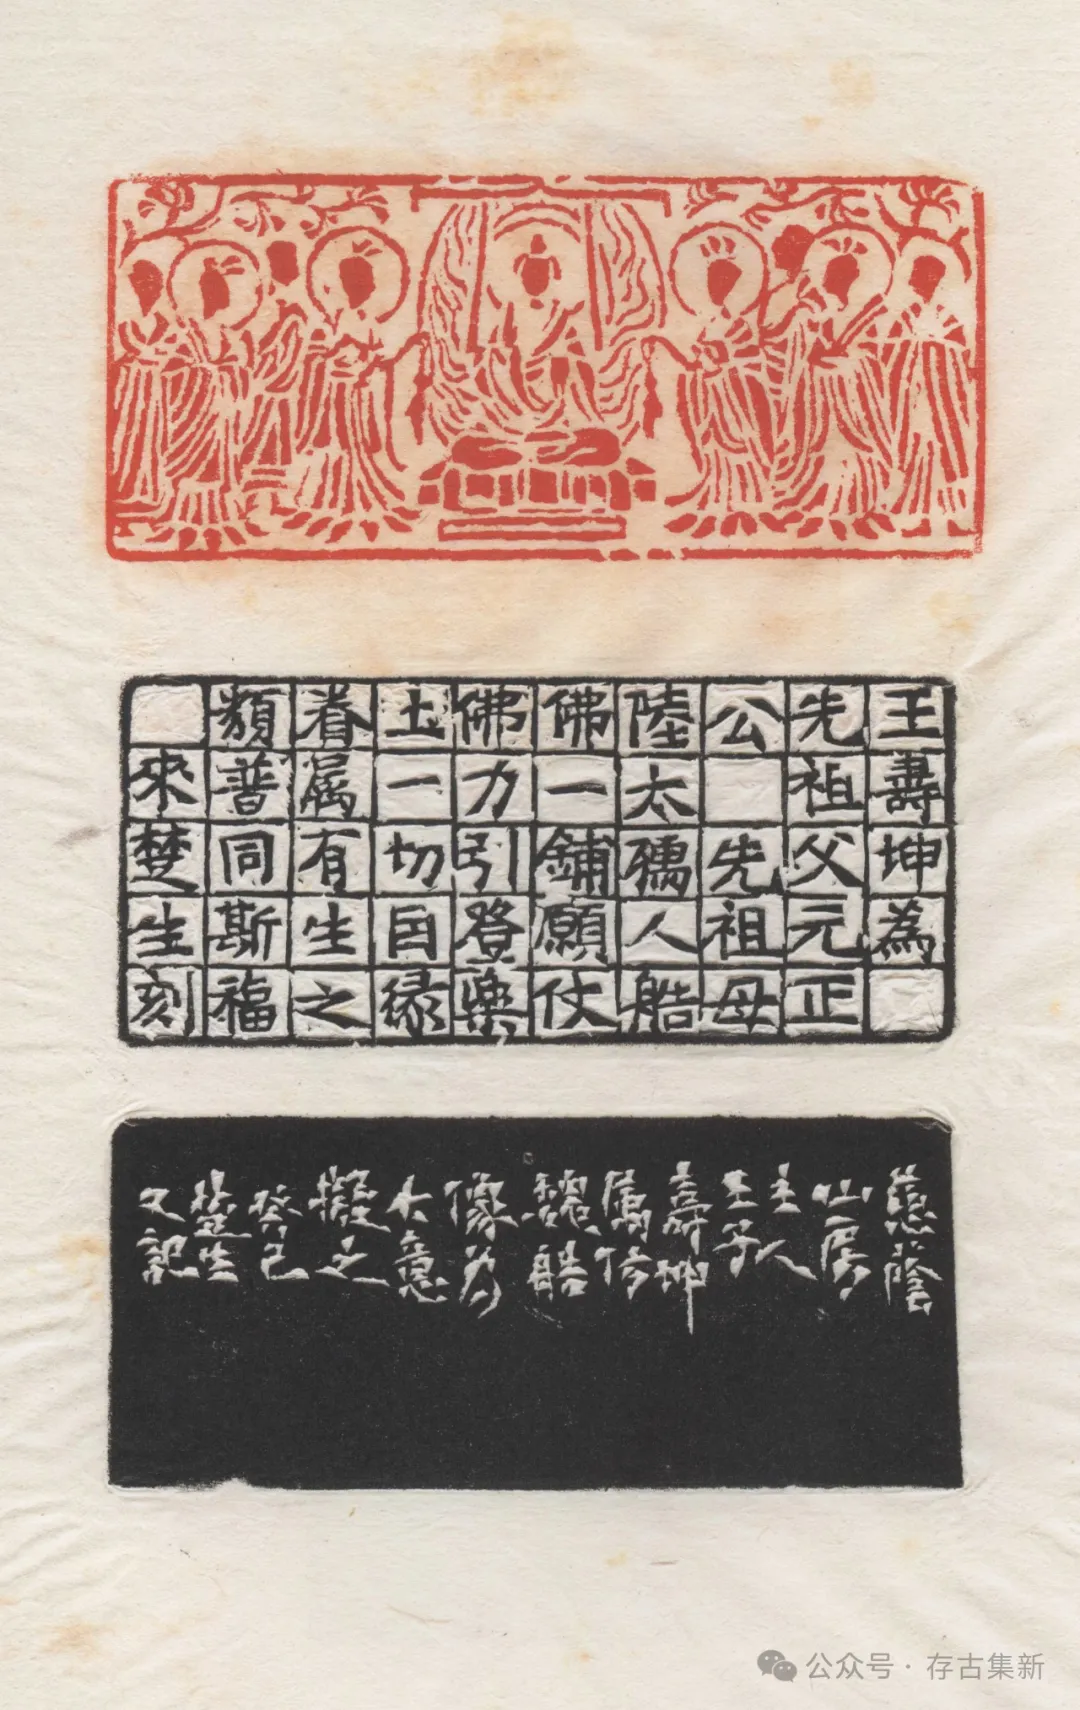 王壽坤為
先祖父元正
公 先祖母
陸太孺人艁
佛一鋪願仗
佛力引登樂
土一切囙緣
眷属有生之
類普同斯福
來楚生刻
慈蔭
山房
主人
王子
壽坤
属仿
魏艁
像为
大意
擬之
癸巳
楚生
又記
公众号·存古集新